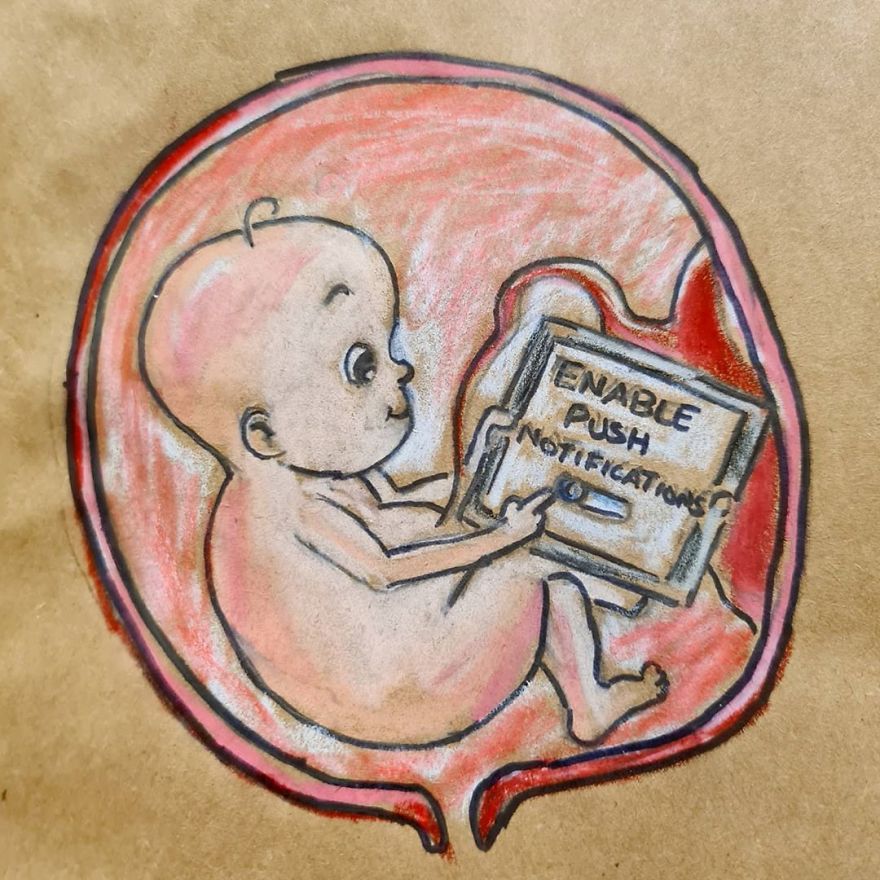 ENABLE
PUSH
NOTIFICATIONS